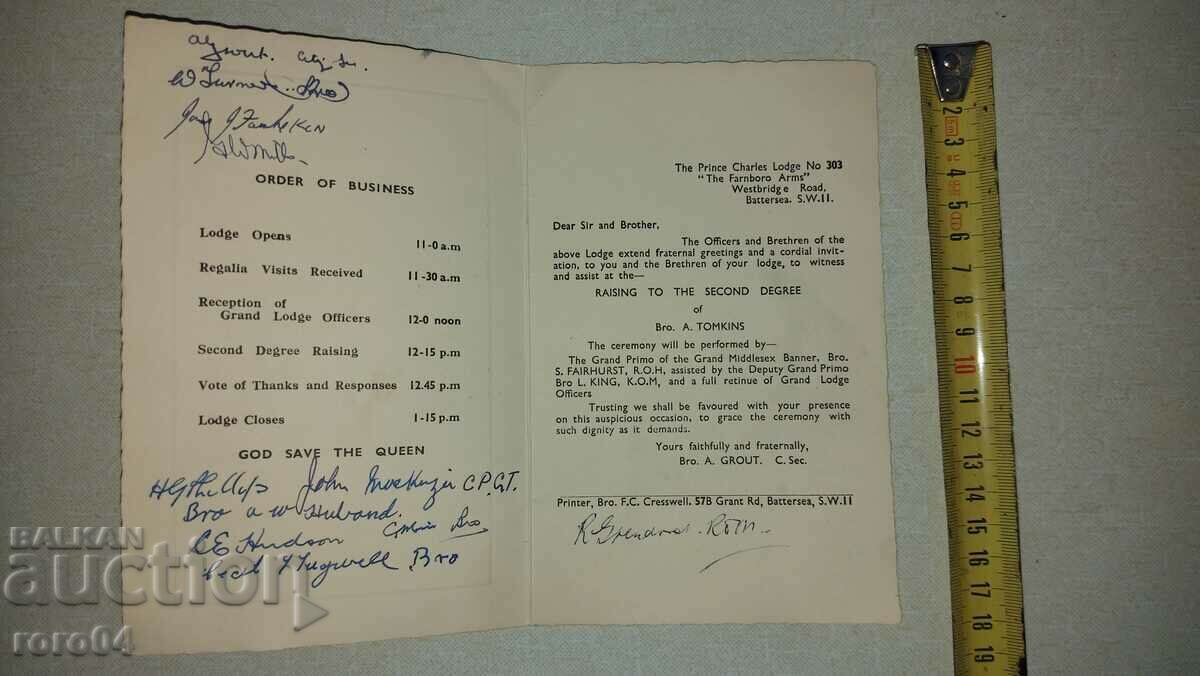 W Turner
ORDER OF BUSINESS
Lodge Opens 11-0 a.m
Regalia Visits Received 11-30 a.m
Reception of
Grand Lodge Officers 12-0 noon
Second Degree Raising 12-15 p.m
Vote of Thanks and Responses 12.45 p.m
Lodge Closes 1-15 p.m
GOD SAVE THE QUEEN
John MacKenzie C.P.G.T.
Bro a w Huband.
CE Hudson Bro
Tugwell Bro
The Prince Charles Lodge No 303
"The Farnboro Arms"
Westbridge Road,
Battersea. S.W.11.
Dear Sir and Brother,
The Officers and Brethren of the
above Lodge extend fraternal greetings and a cordial invit-
ation, to you and the Brethren of your lodge, to witness
and assist at the—
RAISING TO THE SECOND DEGREE
of
Bro. A. TOMKINS
The ceremony will be performed by—
The Grand Primo of the Grand Middlesex Banner, Bro.
S. FAIRHURST, R.O.H, assisted by the Deputy Grand Primo
Bro L. KING, K.O.M, and a full retinue of Grand Lodge
Officers
Trusting we shall be favoured with your presence
on this auspicious occasion, to grace the ceremony with
such dignity as it demands.
Yours faithfully and fraternally,
Bro. A. GROUT. C. Sec.
Printer, Bro. F.C. Cresswell. 57B Grant Rd, Battersea, S.W.11
BALKAN
auction
roro04
2
3
4
5
6
7
8
9
10
11
12
13
14
15
16
17
18
19